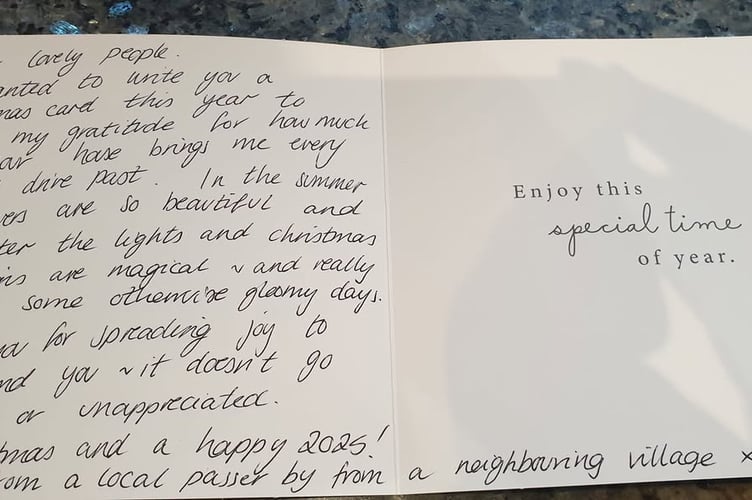 lovely people.
anted to write you a
mas card this year to
my gratitude for how much
our house brings me every
drive past. In the summer
ers are so beautiful and
ter the lights and christmas
ns are magical ~ and really
some otherwise gloomy days.
ou for spreading joy to
nd you ~ it doesn't go
or unappreciated.
tmas and a happy 2025!
rom a local passer by from a neighbouring village x
Enjoy this
special time
of year.